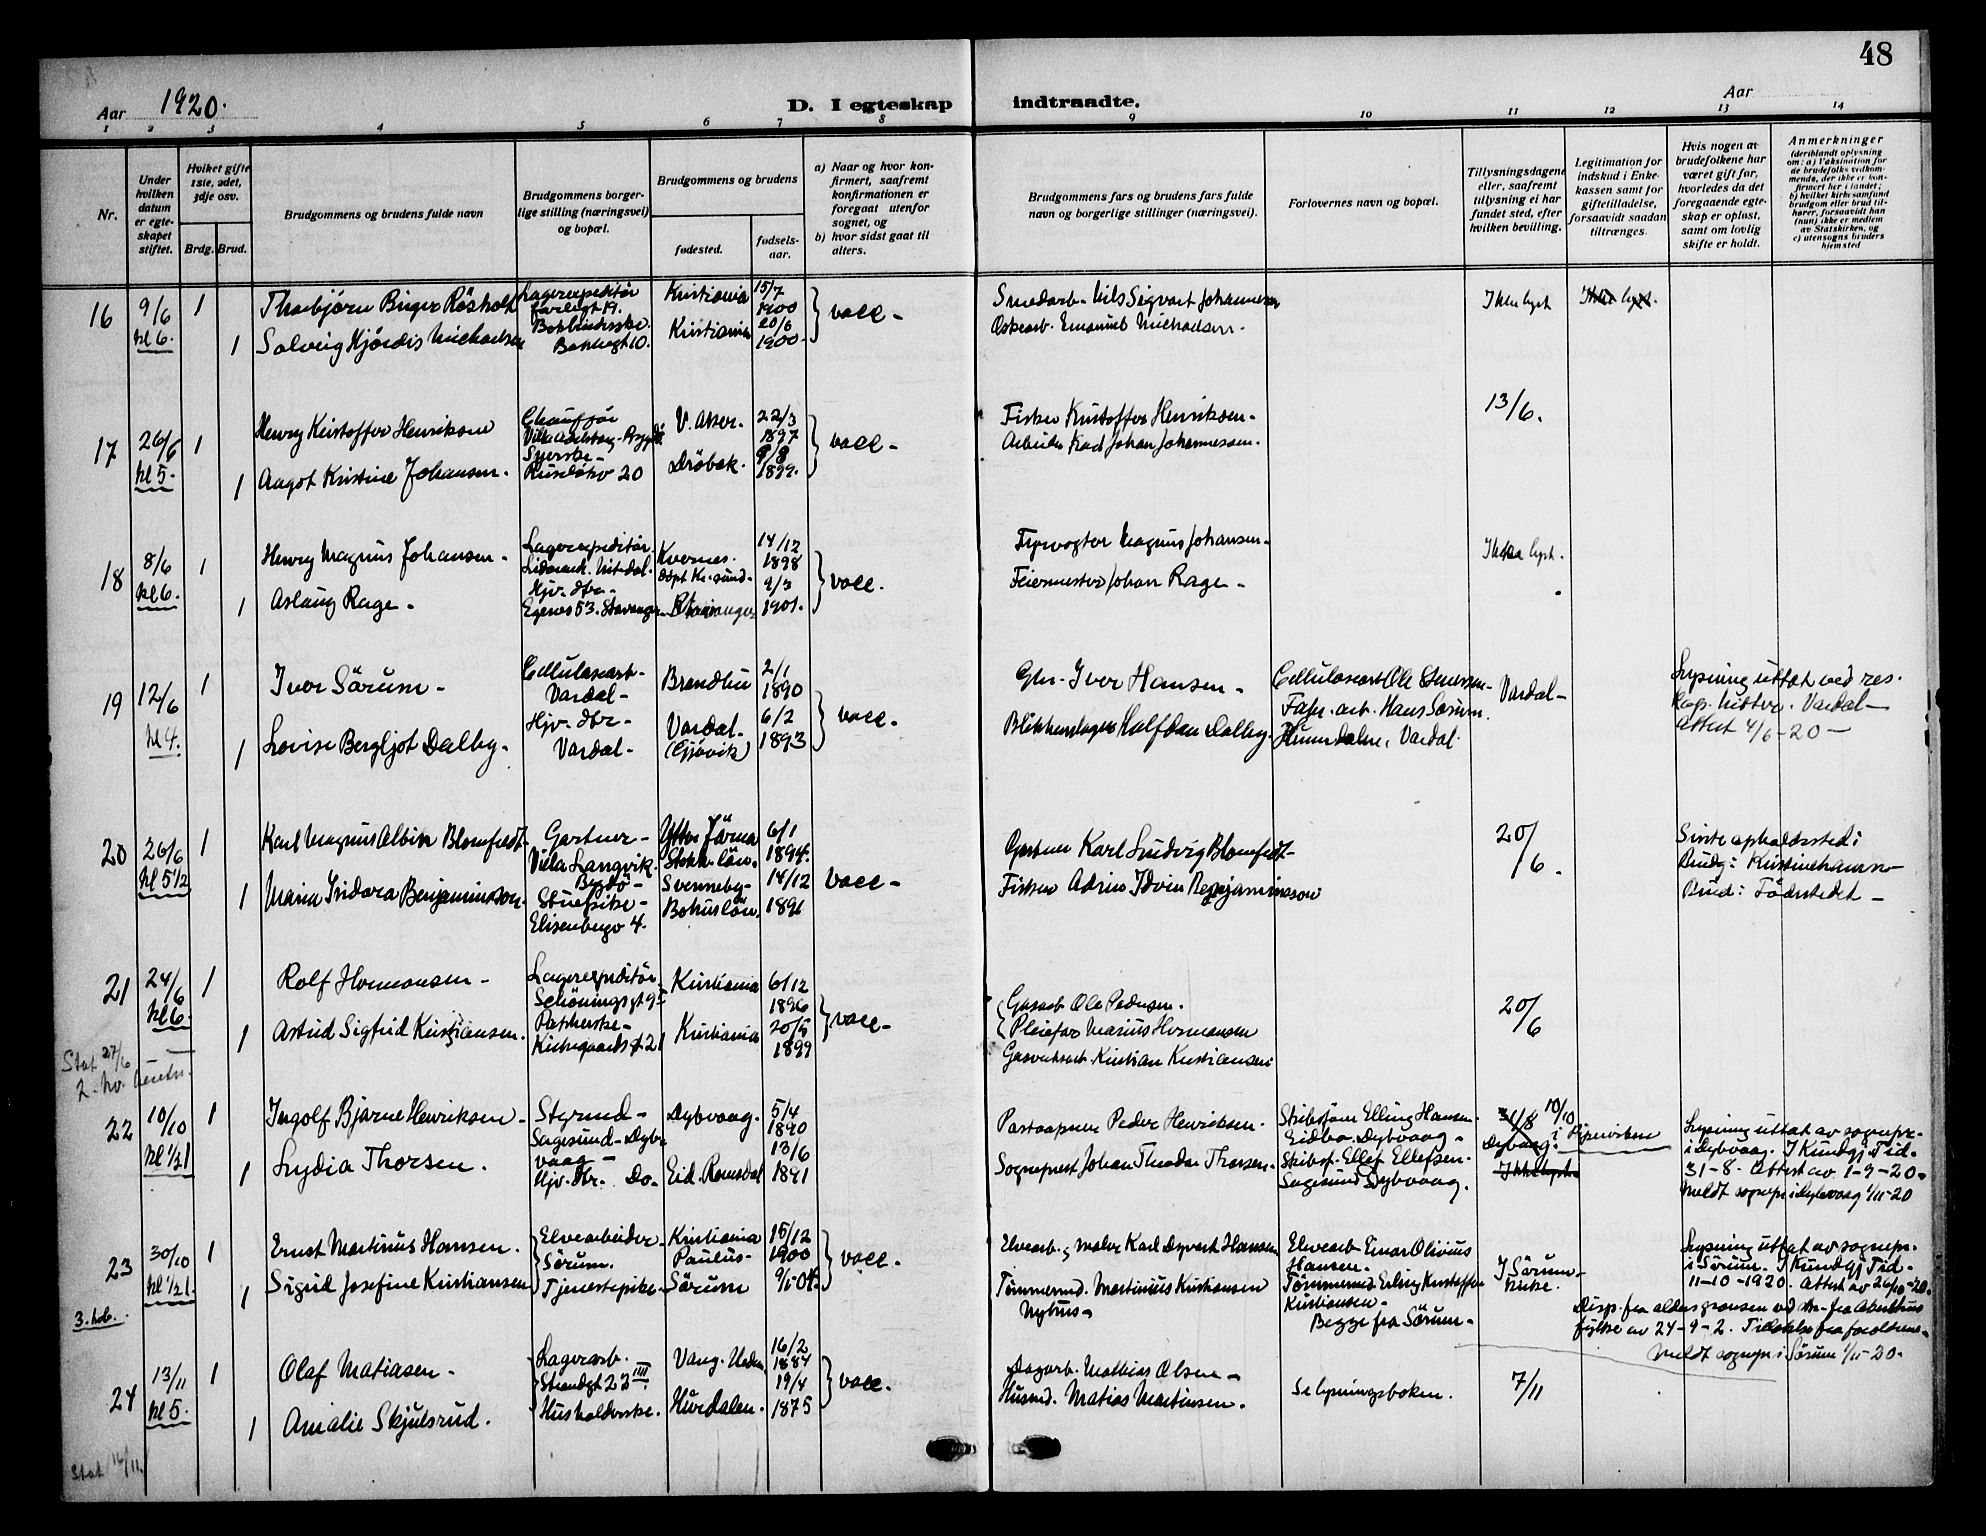 48
Aar 1920.
D. I egteskap indtraadte.
Aar
1 2 3 4 5 6 7 8 9 10 11 12 13 14
Nr.
Under hvilken datum er egteskapet stiftet.
Hvilket gifte 1ste, 2det, 3dje osv.
Brdg. Brud.
Brudgommens og brudens fulde navn
Brudgommens borgerlige stilling (næringsvei) og bopæl.
Brudgommens og brudens
fødested.
fødselsaar.
a) Naar og hvor konfirmert, saafremt konfirmationen er foregaat utenfor sognet, og
b) hvor sidst gaat til alters.
Brudgommens fars og brudens fars fulde navn og borgerlige stillinger (næringsvei).
Forlovernes navn og bopæl.
Tillysningsdagene eller, saafremt tillysning ei har fundet sted, efter hvilken bevilling.
Legitimation for indskud i Enkekassen samt for giftetilladelse, forsaavidt saadan tiltrænges.
Hvis nogen av brudefolkene har været gift før, hvorledes da det foregaaende egteskap er opløst, samt om lovlig skifte er holdt.
Anmerkninger (deriblandt oplysning om: a) Vaksination for de brudefolks vedkommende, der ikke er konfirmert her i landet; b) hvilket kirkesamfund brudgom eller brud tilhører, forsaavidt han (hun) ikke er medlem av Statskirken, og c) utensogns bruders hjemsted
16 9/6 kl 6. 1 Thorbjörn Birger Rösholt Lagerexpeditör 19. Kristiania 15/7 1900 vacc - Nils Sigvart Johannesen Ikke lyst
1 Solveig Hjördis Michaelsen 10. Kristiania 20/6 1900 Emanuel Michaelsen.
17 26/6 kl 5. 1 Henry Kristoffer Henriksen Chauffør V. Aker. 22/3 1897 vacc - Fisker Kristoffer Henriksen - 13/6.
1 Aagot Kristine Johansen. Syerske - 20 Dröbak. 9/8 1899. Arbeider Karl Johan Johannesen.
18 8/6 kl 6. 1 Henry Magnus Johansen - Lagerexpeditör Kvernes. 14/12 1898 vacc. Fyrvogter Magnus Johansen - Ikke lyst.
1 Aslaug Rage - Hjv. dtr - Egenes 53. Stavanger Stavanger 9/3 1901. Feiermester Johan Rage -
19 12/6 kl 4. 1 Iver Sörum - Cellulosearb - Vardal - Brandbu 2/1 1890 vacc - Iver Hansen - Cellulosearb Ole Vardal - Lysning uttat ved res. kap. Vardal -
1 Lovise Bergljot Dalby. Hjv. dtr - Vardal - Vardal. (Gjövik) 6/2 1893 Blikkenslager Halfdan Dalby. Fabr. arb. Hans Sörum. Hunndalen, Vardal. Attest 4/6 - 20 -
20 26/6 kl 5 1/2 1 Karl Magnus Albin Blomfeldt - Gartner - Villa Langvik. Bygdö - Ytter Järna Stokh. län. 6/1 1894. vacc - Gartner Karl Ludvig Blomfeldt - 20/6. Sidste opholdssted: Brudg: Kristinehamn -
1 Maria Isidora Benjaminsson. Stuepike - Elisenbergv 4. Svenneby - Bohuslän. 14/12 1891 Fisker Adrin Idvin Benjaminsson Brud: Fødestedet -
21 24/6 kl 6. 1 Rolf Hermansen - Lagerexpeditör Schöningsgt 9 Kristiania 6/12 1896 vacc - Ole Pedersen. 20/6
Pleiefar Marius Hermansen
1 Astrid Sigfrid Kristiansen. Pakkerske - Kirkegaardsgt. 21 Kristiania 20/5 1899 Kristian Kristiansen
Stat 27/6
22 10/10 kl 1/2 1 1 Ingolf Bjarne Henriksen - Styrmd - Sagesund - Dybvaag - Dybvaag. 5/4 1890 Peder Henriksen. Elling Hansen - Eidbo. Dybvaag - 31/8 10/10 i Dybvaag. Piperviken Lysning uttat av sognepr. i Dybvaag. I Kundgj. Tid.
1 Lydia Thorsen. Hjv. dtr. Do - Eid. Romsdal 13/6 1891 Sogneprest Johan Theodor Thorsen. Skibsf. Ellef Ellefsen. Sagesund Dybvaag. Ikke lyst 31-8. Attest av 1-9-20.
Meldt sognepr. i Dybvaag 1/11-20
23 30/10 kl 1/2 1. 1 Ernst Martinus Hansen. Elvearbeider - Sörum. Kristiania Paulus - 15/12 1900 vacc. Elvearb. og maler Karl Hansen Elvearb. Einar Olivius Hansen. I Sörum kirke. Lysning uttat av sognepr. i Sörum. I Kundgj Tid.
1 Sigrid Josefine Kristiansen Tjenestepike - Sörum 9/5-04. Tömmermd. Martinius Kristiansen Nyhus - Tømmermd. Erling Kristoffer Kristiansen - Begge fra Sörum - 11-10-1920. Attest av 26/10-20.
Disp. fra aldersgrænsen ved fra Akershus fylke av 24-9-2. fra foreldrene -
Meldt sognepr. i Sörum 1/11-20.
3. kob.
24 13/11 kl 5. 1 Olaf Matiasen - Lagerarb. Strandgt 22 III Vang. Hedm. 16/2 1884 vacc. Dagarb. Mathias Olsen - Se lysningsboken. 7/11
1 Amalie Skjulsrud. Husholderske. Hurdalen. 19/4 1875 Husmd. Matias Martinsen.
Stat 16/11.